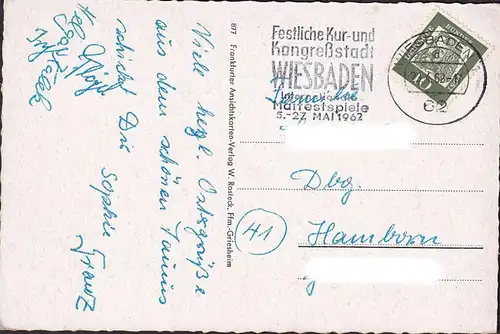 Viele herzl. Ostergrüße
aus dem schönen Taunus
schickt Dir Sophie
Franz
877 Frankfurter Ansichtskarten-Verlag W. Rosteck, Ffm.-Griesheim
Festliche Kur- und
Kongreßstadt
WIESBADEN
Internationale
Maifestspiele
5.-27. MAI 1962
WIESBADEN
62
10
Familie
Dbg.
41
Hamborn